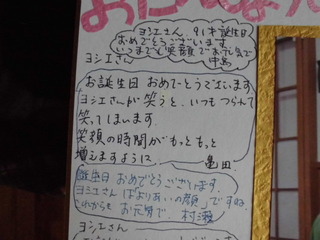 ヨシエさん、91才誕生日
おめでとうございます
いつまでも笑顔でお元気で
中島
ヨシエさん
お誕生日 おめでとうございます
ヨシエさんが笑うと、いつもつられて
笑ってしまいます.
笑顔の時間がもっともっと
増えますように.
亀田
誕生日 おめでとうございます.
ヨシエさん「ばよりあいの顔」ですね
これからも お元気で. 村瀬
ヨシエさん